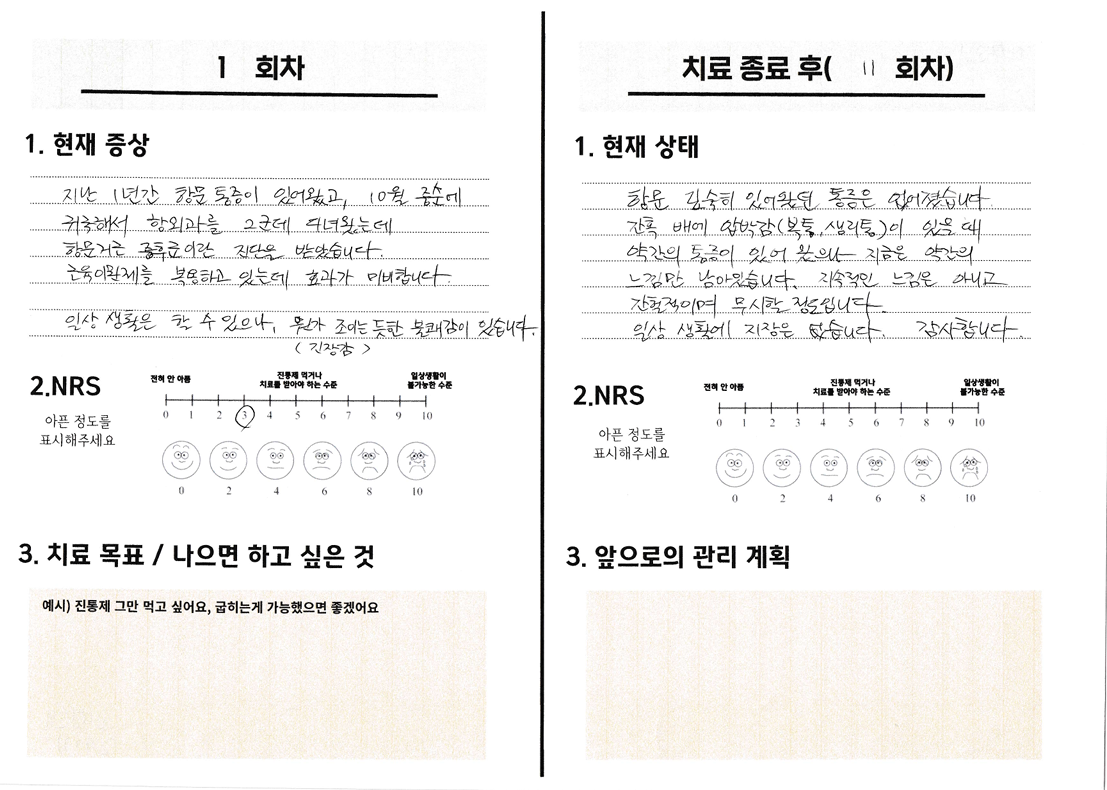 1 회차
1. 현재 증상
지난 1년간 항문 통증이 있어왔고, 10월 중순에
귀국해서 항외과를 2군데 다녀왔는데
항문거근 증후군이란 진단을 받았습니다.
근육이완제를 복용하고 있는데 효과가 미비합니다.
일상 생활은 할 수 있으나, 뭔가 조이는 듯한 불쾌감이 있습니다.
(긴장감)
2.NRS
아픈 정도를
표시해주세요
전혀 안 아픔
진통제 먹거나
치료를 받아야 하는 수준
일상생활이
불가능한 수준
0 1 2 3 4 5 6 7 8 9 10
0 2 4 6 8 10
3. 치료 목표 / 나으면 하고 싶은 것
예시) 진통제 그만 먹고 싶어요, 굽히는게 가능했으면 좋겠어요
치료 종료 후( 11 회차)
1. 현재 상태
항문 깊숙히 있어왔던 통증은 없어졌습니다
간혹 배에 압박감(복통, 생리통)이 있을 때
약간의 통증이 있어 왔으나 지금은 약간의
느낌만 남아있습니다. 지속적인 느낌은 아니고
간헐적이며 무시할 정도입니다.
일상 생활에 지장은 없습니다. 감사합니다.
2.NRS
아픈 정도를
표시해주세요
전혀 안 아픔
진통제 먹거나
치료를 받아야 하는 수준
일상생활이
불가능한 수준
0 1 2 3 4 5 6 7 8 9 10
0 2 4 6 8 10
3. 앞으로의 관리 계획